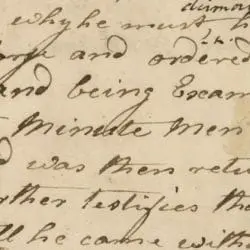 why he must h
and ordered
and being Exam
Minute Men
was then retu
rther testifies tha
ll he came with